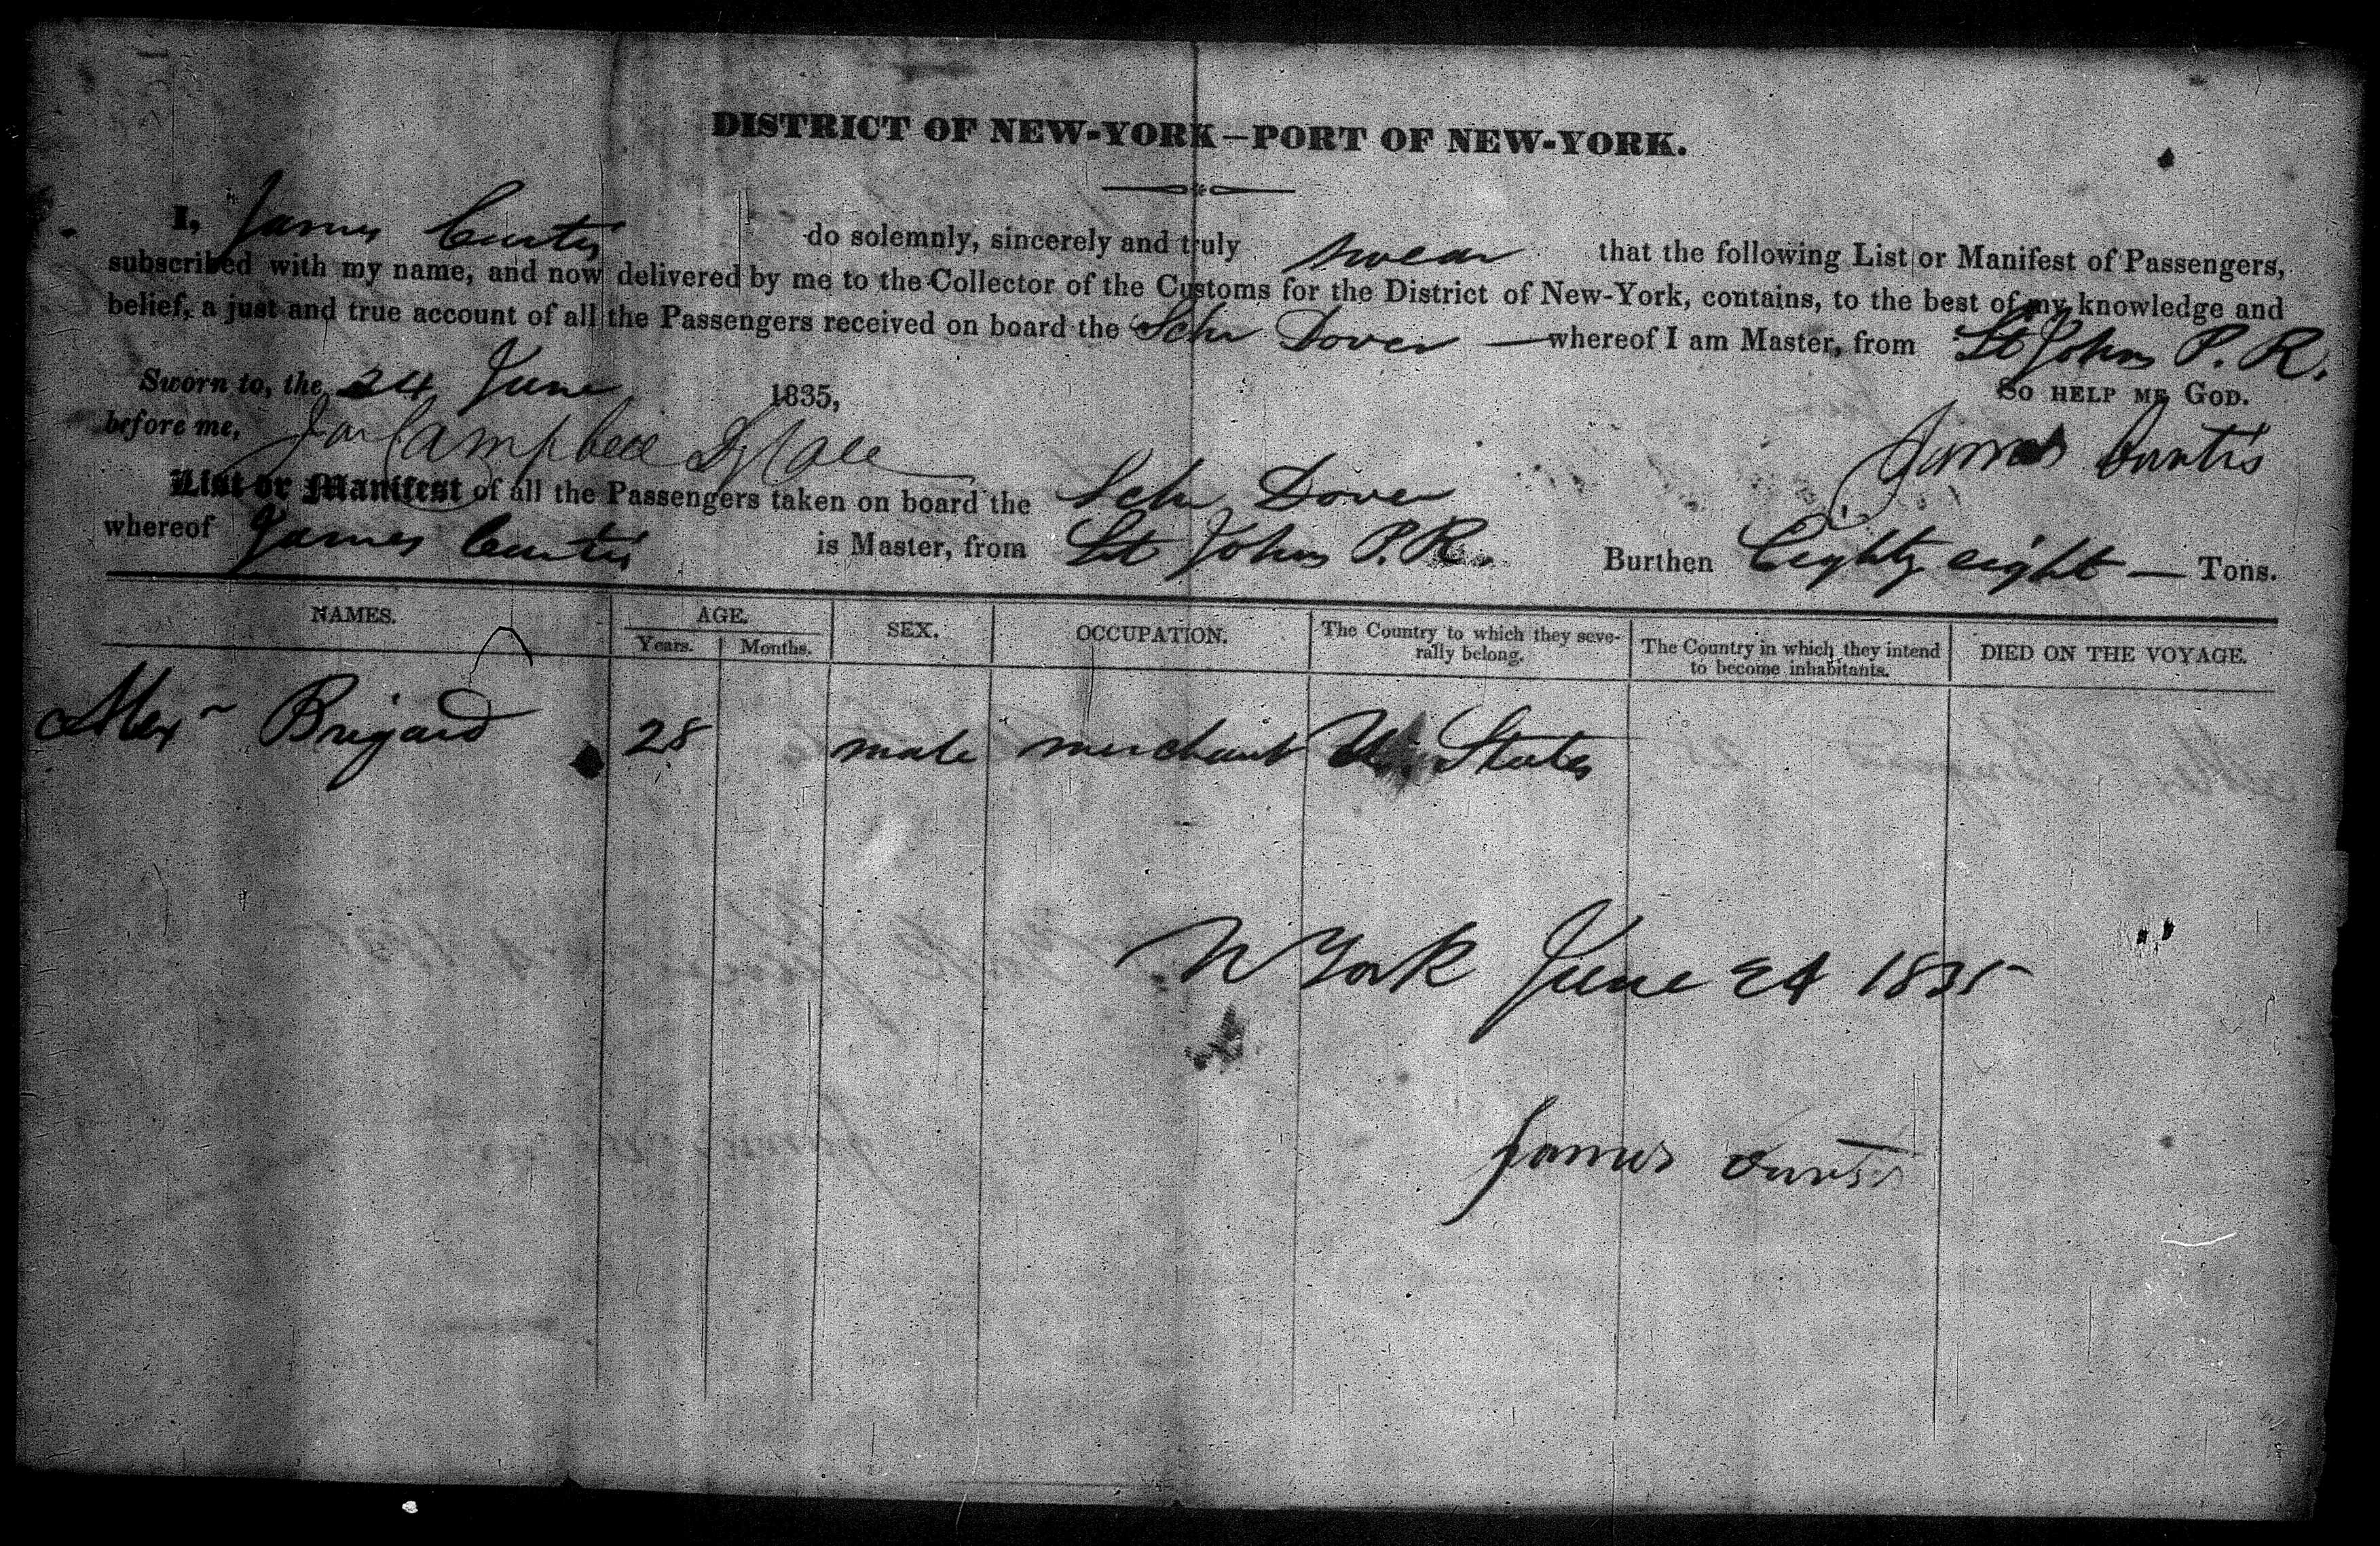 DISTRICT OF NEW-YORK—PORT OF NEW-YORK.
I, James Curtis do solemnly, sincerely and truly swear that the following List or Manifest of Passengers,
subscribed with my name, and now delivered by me to the Collector of the Customs for the District of New-York, contains, to the best of my knowledge and
belief, a just and true account of all the Passengers received on board the Schr Dover — whereof I am Master, from St Johns P. R.
Sworn to, the 24 June 1835, So HELP ME GOD.
before me, Campbell James Curtis
List or Manifest of all the Passengers taken on board the Schr Dover
whereof James Curtis is Master, from St Johns P. R. Burthen Eighty eight — Tons.
NAMES. AGE. SEX. OCCUPATION. The Country to which they seve-
rally belong. The Country in which they intend
to become inhabitants. DIED ON THE VOYAGE.
Years. Months.
Alexr Brigard 28 male merchant U. States
N York June 24 1835
James Curtis